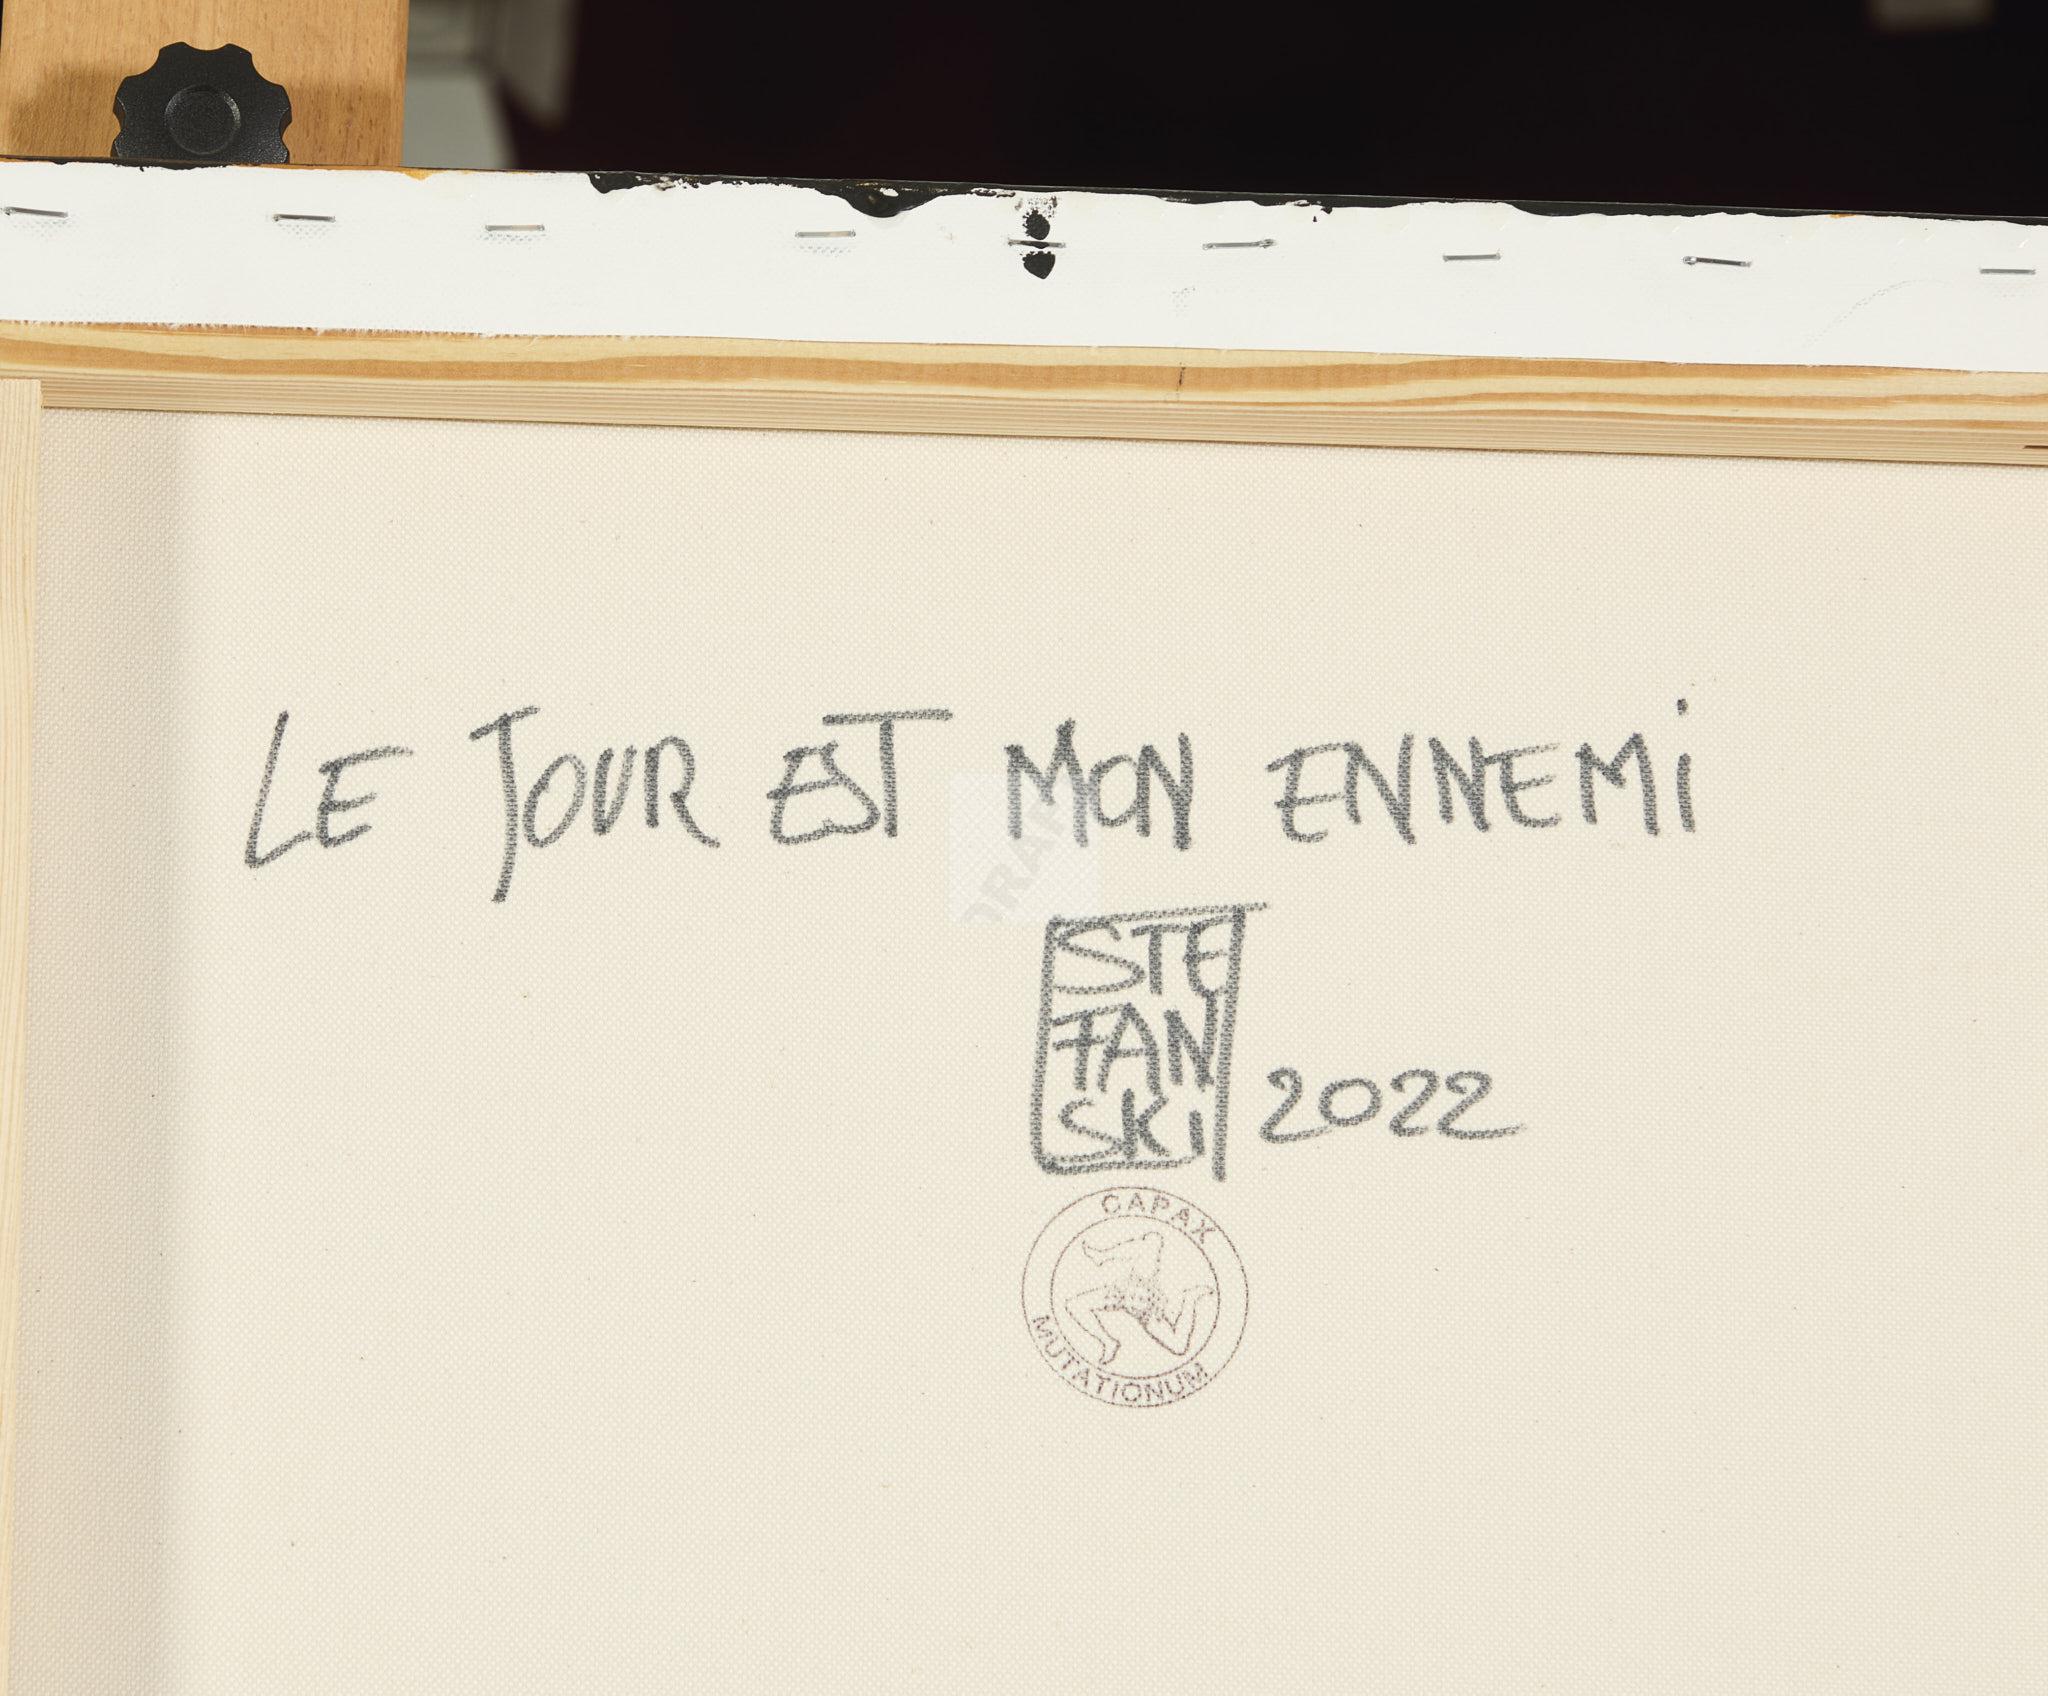 LE JOUR EST MON ENNEMi
STE
FAN
SKi
2022
CAPAX
MUTATIONUM